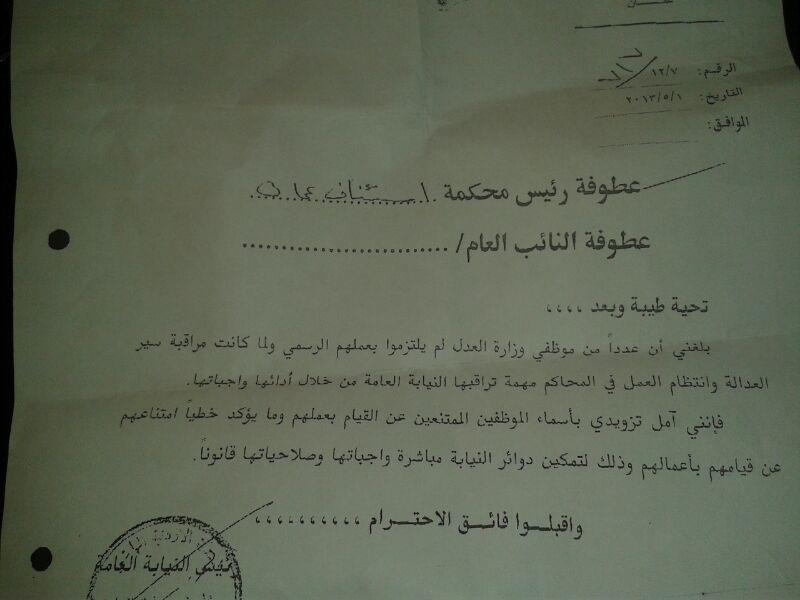 عمان
الرقم: ١٢/٧/
التاريخ: ٢٠١٣/٥/١
الموافق:
عطوفة رئيس محكمة استئناف عمان
عطوفة النائب العام/ ..........................
تحية طيبة وبعد ،،،،
بلغني أن عدداً من موظفي وزارة العدل لم يلتزموا بعملهم الرسمي ولما كانت مراقبة سير
العدالة وانتظام العمل في المحاكم مهمة تراقبها النيابة العامة من خلال أدائها واجباتها.
فإنني آمل تزويدي بأسماء الموظفين الممتنعين عن القيام بعملهم وما يؤكد خطياً امتناعهم
عن قيامهم بأعمالهم وذلك لتمكين دوائر النيابة مباشرة واجباتها وصلاحياتها قانوناً.
واقبلــوا فائــق الاحتــرام ،،،،،،،،،،
رئيس النيابة العامة